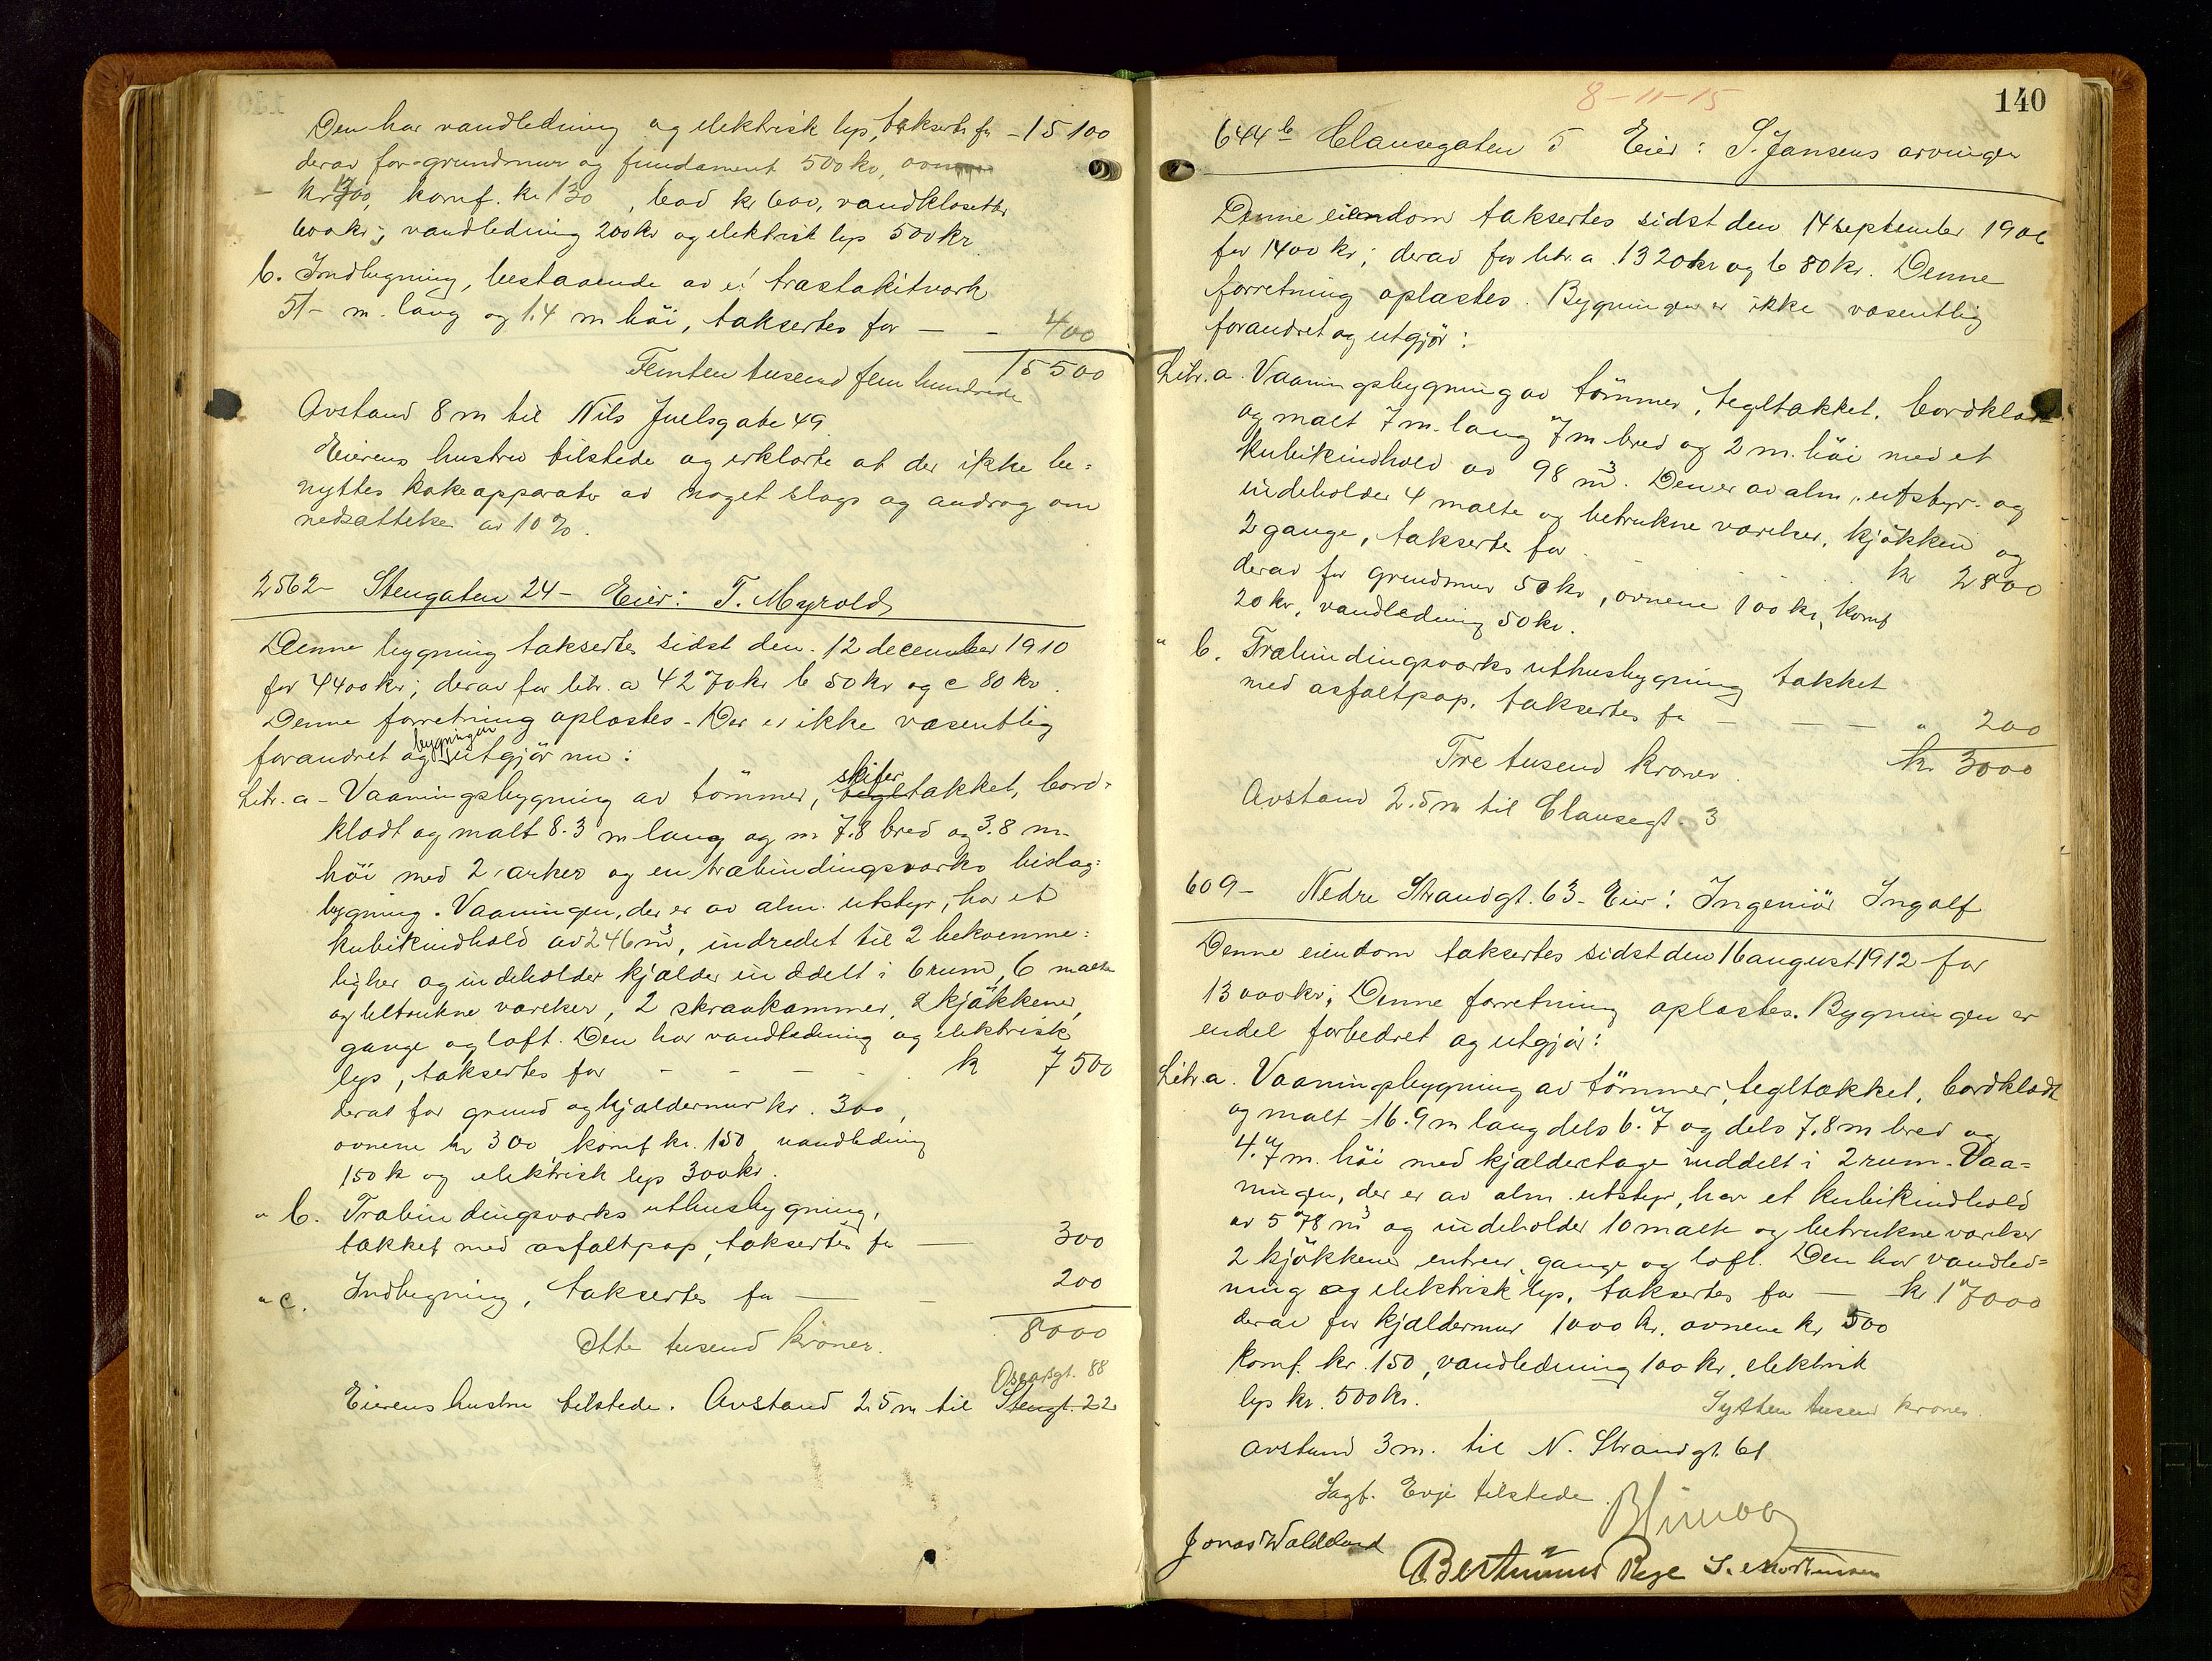 Den har vandledning og elektrisk lys, taksertes for - 15100
derav for grundmur og fundament 500 kr, ovnene
kr 1300, komf. kr 130, bad kr 600, vandklosetter
600 kr; vandledning 200 kr og elektrisk lys 500 kr
b. Indbygning, bestaaende av et træstakitværk
51 - m. lang og 1.4 m høi, taksertes for — - 400
15500
Femten tusend fem hundrede
Avstand 8 m til Nils Juelsgate 49.
Eierens hustru tilstede og erklærte at der ikke be=
nyttes kokeapparater av noget slags og androg om
nedsættelse av 10%.
2562 - Stengaten 24 - Eier: T. Myrold
Denne bygning taksertes sidst den 12 december 1910
for 4400 kr; derav for litr. a 4270 kr b 50 kr og c 80 kr.
Denne forretning oplæstes - Der er ikke væsentlig
forandret og bygningen utgjør nu:
Litr. a - Vaaningsbygning av tømmer, tegl skifer takket, bord-
klædt og malt 8.3 m lang og m 7.8 bred og 3.8 m
høi med 2 arker og en træbindingsværks bislag=
bygning. Vaaningen, der er av alm. utstyr, har et
kubikindhold av 246 m³, indredet til 2 bekvemme=
ligher og indeholder kjælder inddelt i 6 rum, 6 malte
og betrukne værelser, 2 skraakammer, 2 kjøkkener,
gange og loft. Den har vandledning og elektrisk
lys, taksertes for - - - - kr 7500
derav for grund og kjældermur kr. 300,
ovnene kr 300 komf kr. 150, vandledning
150 kr og elektrisk lys 300 kr.
" b. Træbindingsværks uthusbygning,
takket med asfaltpap, taksertes for — 300
" c. Indbygning, taksertes for — - 200
8000
Otte tusend kroner.
Oscarsgt. 88
Eierens hustru tilstede. Avstand 2.5 m til Stengt. 22
8-11-15
140
644 b Clausegaten 5 Eier: S. Jansens arvinger
Denne eiendom taksertes sidst den 14 september 1906
for 1400 kr; derav for litr. a 1320 kr og b 80 kr. Denne
forretning oplæstes. Bygningen er ikke væsentlig
forandret og utgjør:
Litr. a. Vaaningsbygning av tømmer, tegltakket, bordklædt
og malt 7 m. lang 7 m bred og 2 m. høi med et
kubikindhold av 98 m³. Den er av alm. utstyr og
indeholder 4 malte og betrukne værelser, kjøkken og
2 gange, taksertes for . - - . kr 2800
derav for grundmur 50 kr, ovnene 100 kr, komf
20 kr, vandledning 50 kr.
" b. Træbindingsværks uthusbygning takket
med asfaltpap, taksertes for - — — " 200
Tre tusend kroner. kr 3000
Avstand 2.5 m til Clausegt. 3
609 - Nedre Strandgt. 63 - Eier: Ingeniør Ingolf
Denne eiendom taksertes sidst den 16 august 1912 for
13000 kr; Denne forretning oplæstes. Bygningen er
endel forbedret og utgjør:
Litr. a. Vaaningsbygning av tømmer, tegltakket, bordklædt
og malt - 16.9 m lang dels 6.7 og dels 7.8 m bred og
4.7 m. høi med kjælderetage inddelt i 2 rum - Vaa=
ningen, der er av alm. utstyr, har et kubikindhold
av 578 m³ og indeholder 10 malte og betrukne værelser
2 kjøkkener, entreer, gange og loft. Den har vandled=
ning og elektrisk lys, taksertes for — kr 17000
derav for kjældermur 1000 kr. ovnene kr 500
komf. kr. 150, vandledning 100 kr, elektrisk
lys kr. 500 kr.
Sytten tusen kroner.
avstand 3 m. til N. Strandgt. 61
Sagf. Evje tilstede.
Jonas Waldeland
Bertinius Rege S. Mortensen